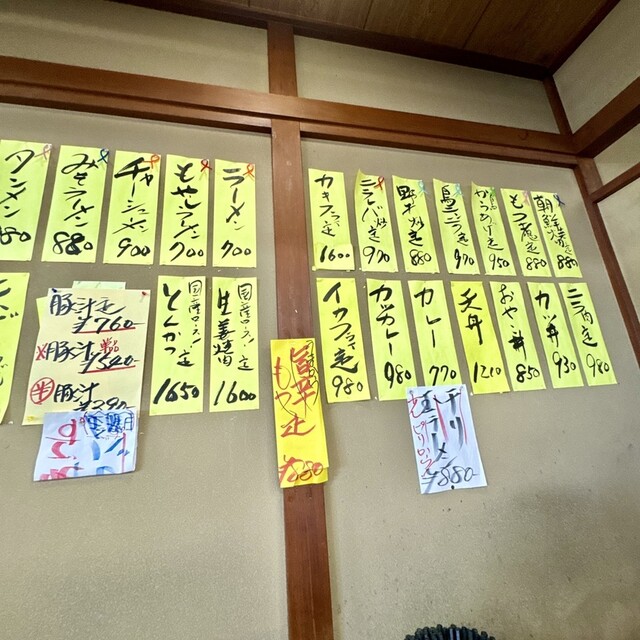 朝鮮漬 880
もつ煮定 880
かつあげ定 950
馬ニラ定 970
野才炒定 880
ニラレバ炒定 970
カキフライ定 1600
ラーメン 700
もやしラーメン 700
チャーシューメン 900
みそラーメン 880
タンメン
ニラ肉定 980
カツ丼 930
おやこ丼 850
天丼 1210
カレー 770
カツカレー 980
イカフライ定 980
国産ロース 定
生姜焼 1600
国産ロース 定
とんかつ 1650
豚汁定
¥760-
豚汁 単品
¥540-
半 豚汁
もやし定
¥880
チリ
ラーメン
ピリカラ
¥880-